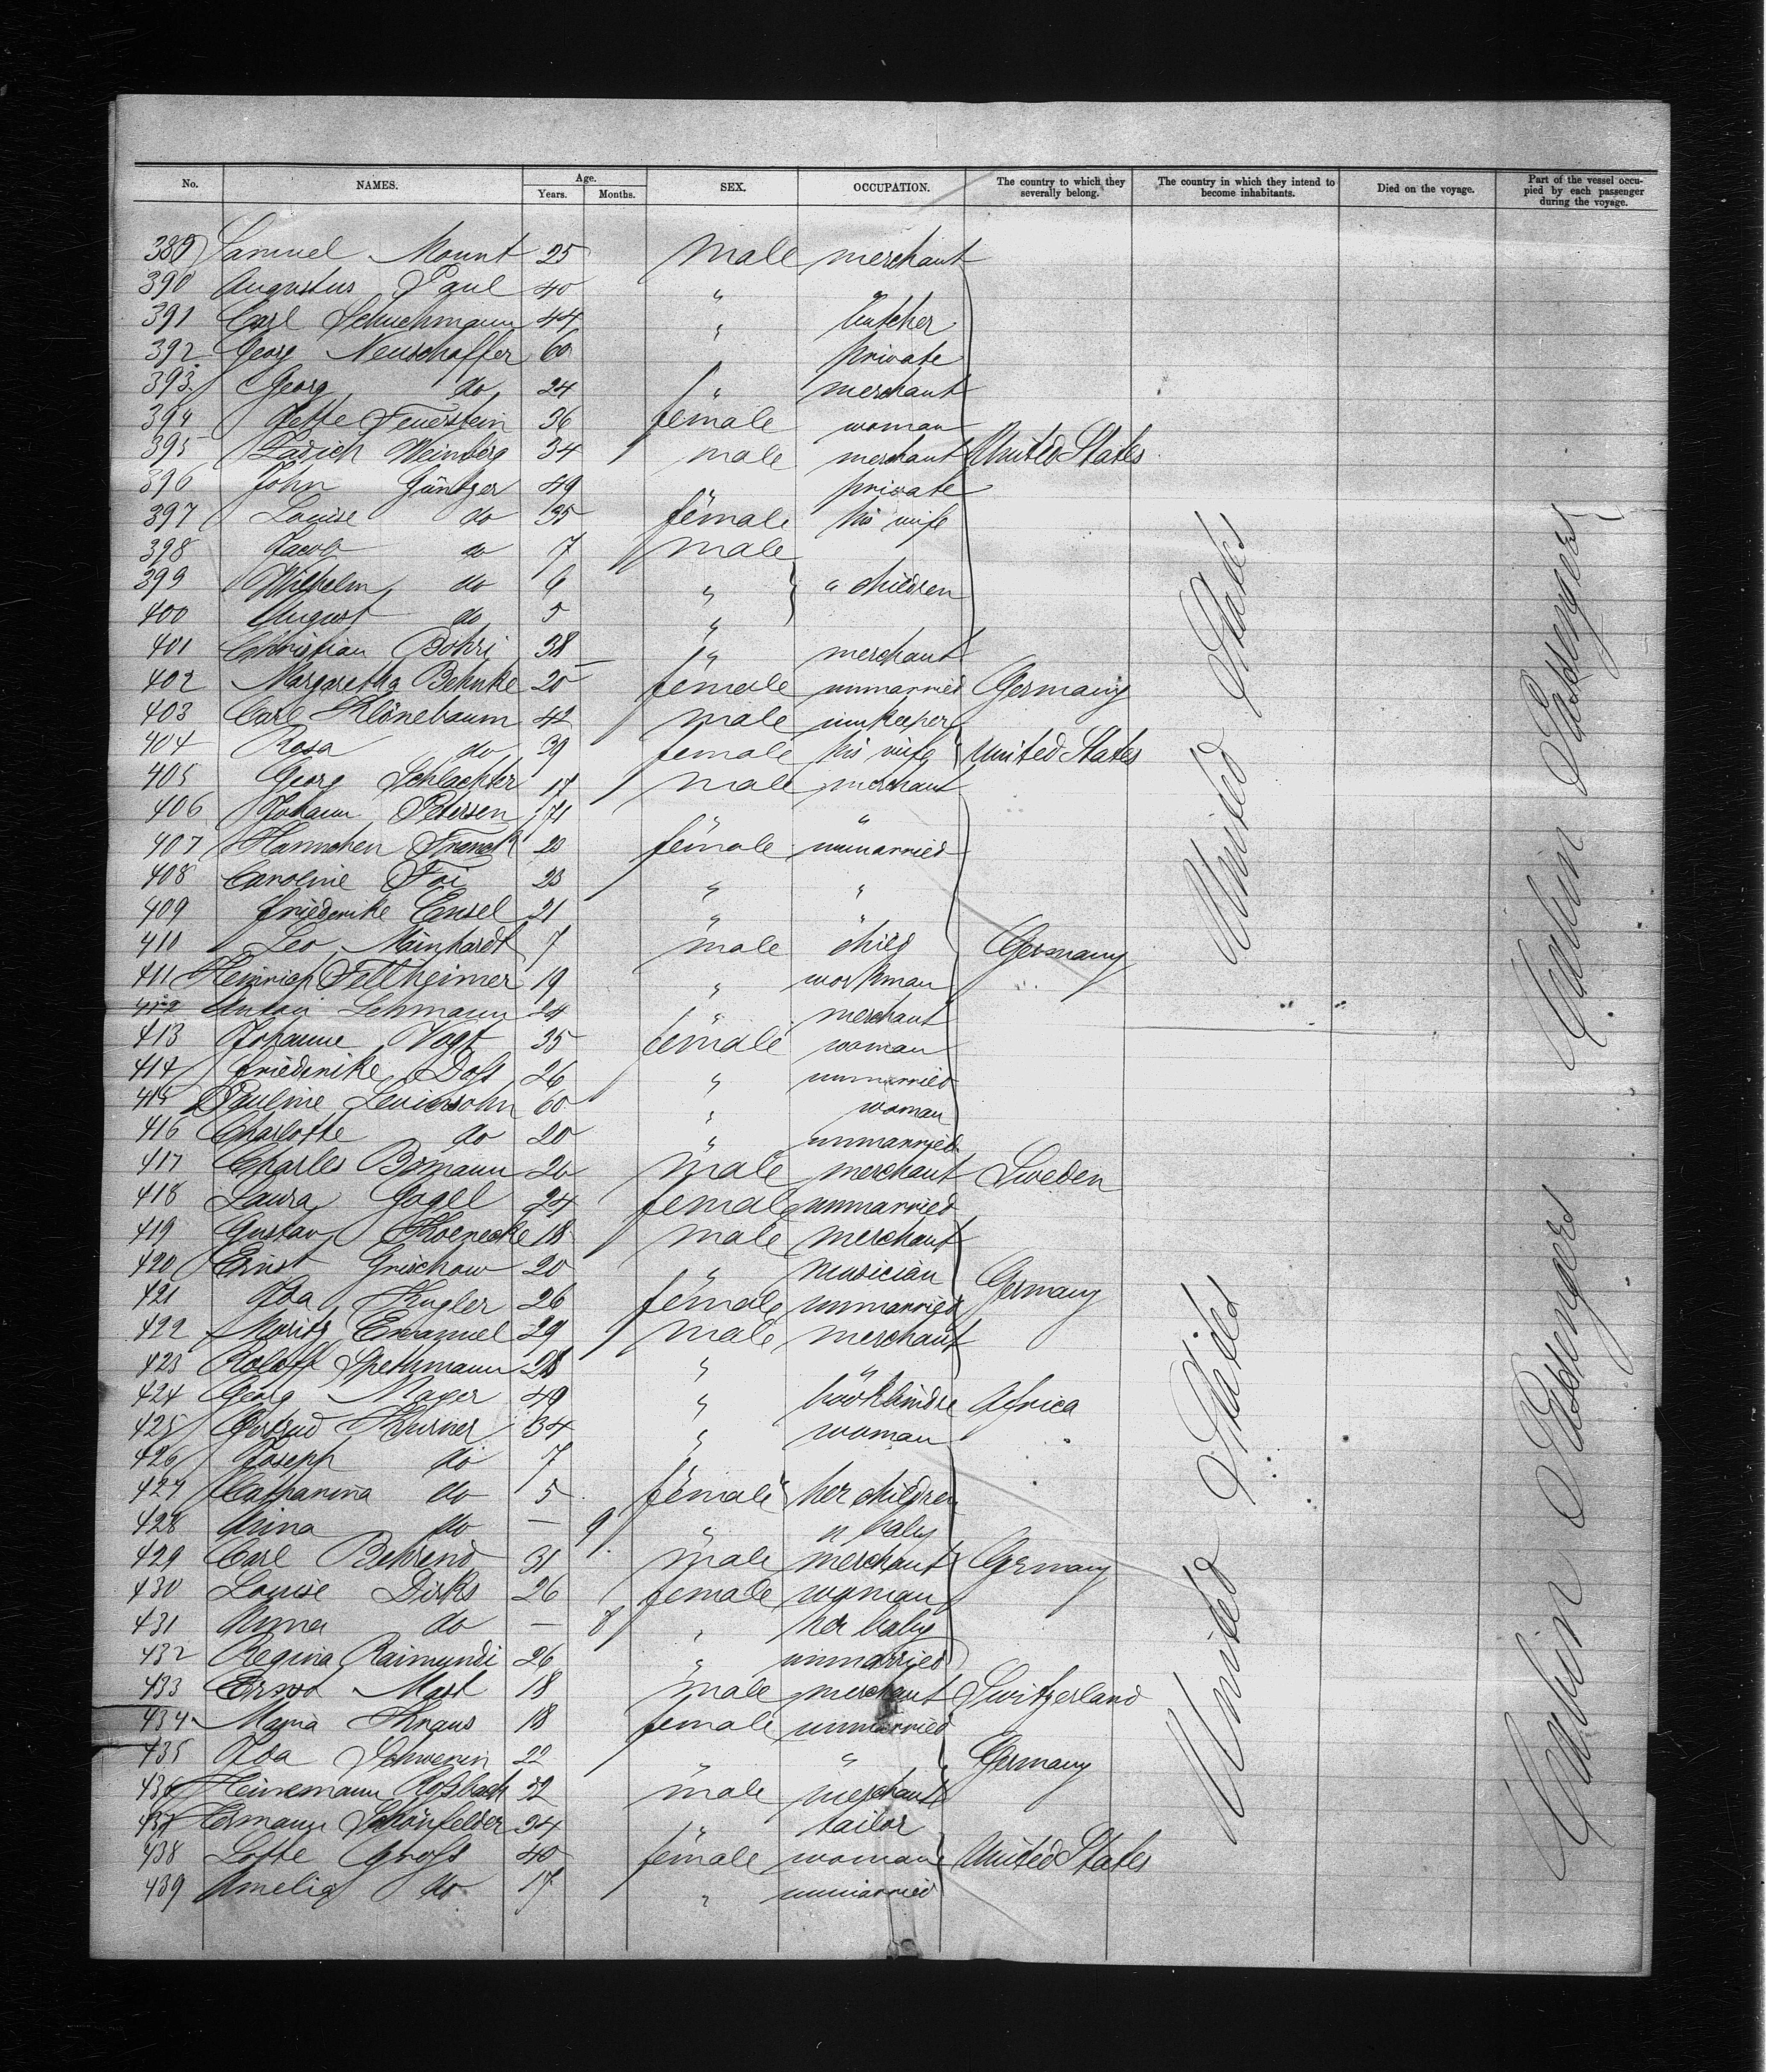 No. NAMES. Age. Years. Months. SEX. OCCUPATION. The country to which they severally belong. The country in which they intend to become inhabitants. Died on the voyage. Part of the vessel occupied by each passenger during the voyage.
389 Samuel Mount 25 male merchant
390 Augustus Paul 40 " "
391 Carl Schuchmann 44 " butcher
392 Georg Neuschaffer 60 " private
393 Georg do 24 " merchant
394 Jette Feuerstein 36 female woman
395 Weinberg 34 male merchant United States
396 John Güntzer 49 " private
397 Louise do 35 female his wife
398 Jacob do 7 male
399 Wilhelm do 6 " " children
400 August do 5 "
401 Christian Bohri 38 " merchant
402 Margaretha Behnke 20 female unmarried Germany
403 Carl Klönebaum 42 male innkeeper
404 Rosa do 39 female his wife United States
405 Georg Schlachter 17 male merchant
406 Johann Petersen 71 " "
407 Hannchen Franck 20 female unmarried
408 Caroline Foi 23 " "
409 Friederike Ensel 21 " "
410 Leo Mainhardt 7 male child Germany
411 Heinrich Fellheimer 19 " workman
412 Anton Lehmann 24 " merchant
413 Johanne Vogt 35 female woman
414 Friederike Doss 26 " unmarried
415 Pauline Leviersohn 60 " woman
416 Charlotte do 20 " unmarried
417 Charles Bomann 20 male merchant Sweden
418 Laura Gogel 24 female unmarried
419 Gustav 18 male merchant
420 Ernst Grischow 20 " musician Germany
421 Ida Kugler 26 female unmarried
422 Moritz Emanuel 29 male merchant
423 Roloff Spethmann 28 " "
424 Georg Mayer 49 " bookbinder Africa
425 Gertrud Kurner 34 " woman
426 Joseph do 7 "
427 Catharina do 5 female her children
428 Anna do — 9 " " baby
429 Carl Behrend 31 male merchant Germany
430 Louise Dirks 26 female woman
431 Anna do — 8 " her baby
432 Regina Raimundi 26 " unmarried
433 Ernst Mast 18 male merchant Switzerland
434 Maria Knaus 18 female unmarried
435 Ida Schwerin 22 " " Germany
436 Heinemann Rossbach 32 male merchant
437 Hermann Schönfelder 24 " tailor
438 Lotte Gross 40 female woman United States
439 Amelia do 17 " unmarried
United States
Cabin Passengers
United States
Cabin Passengers